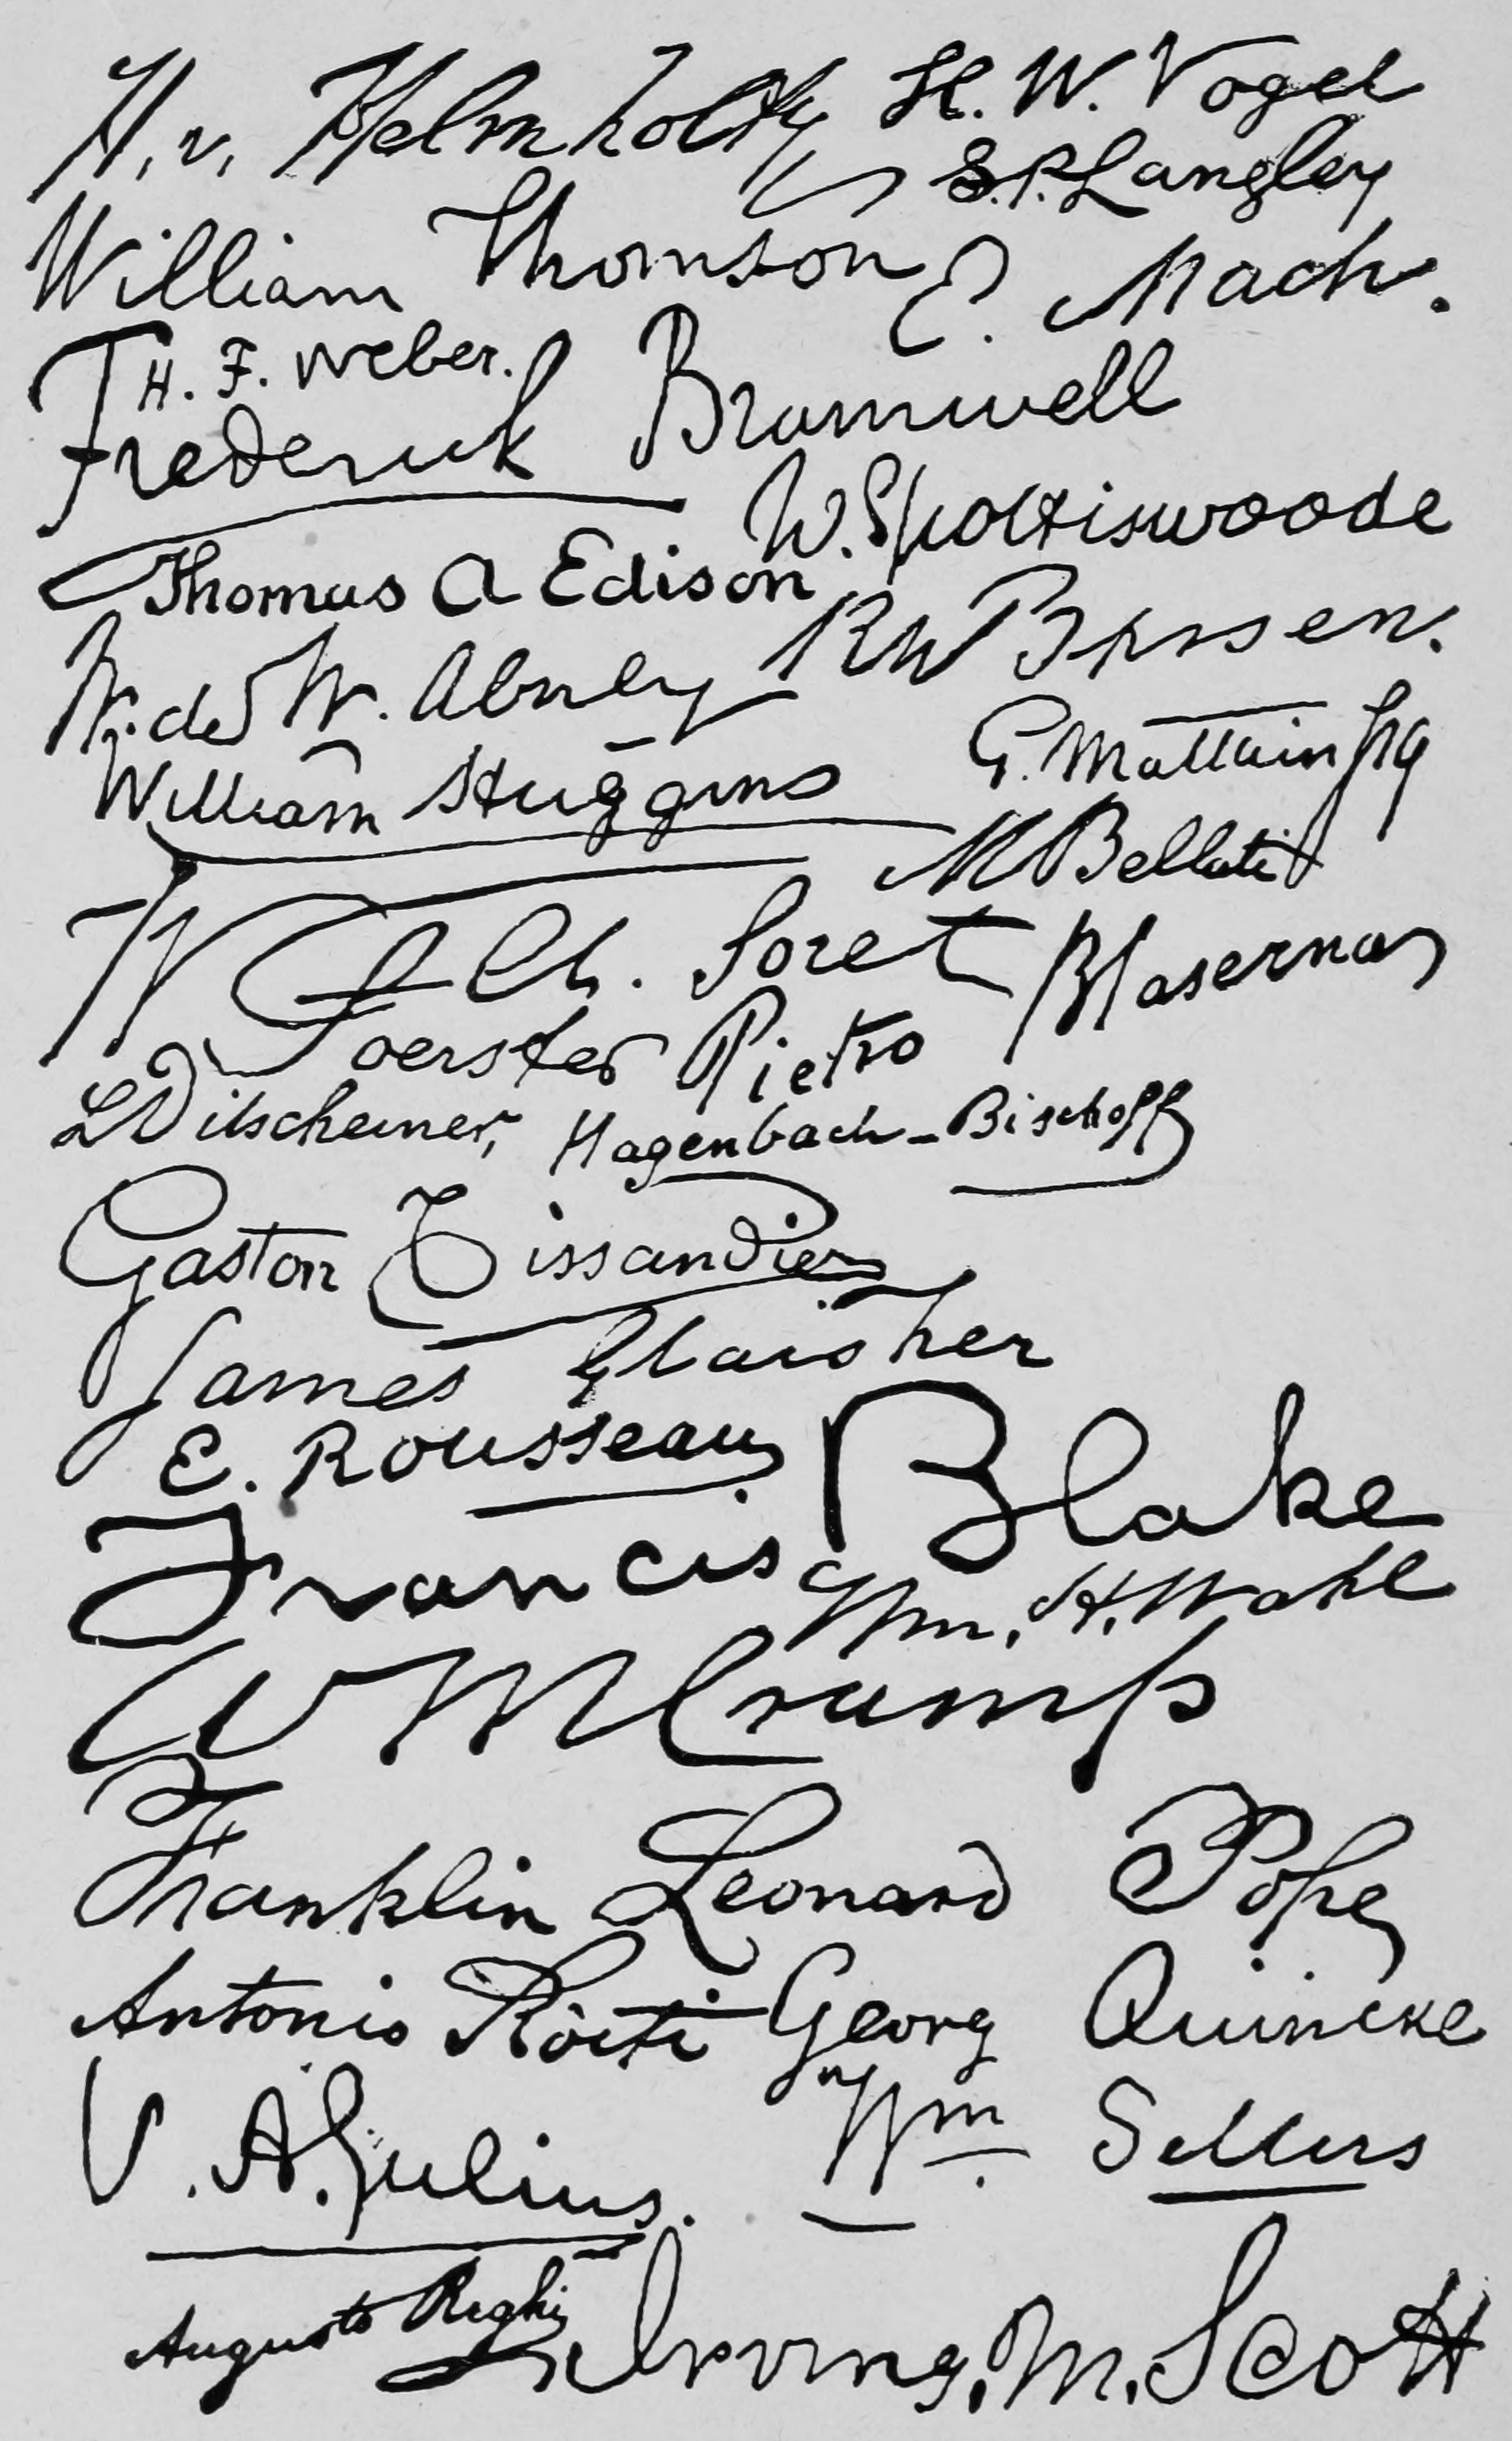 H. v. Helmholtz H. W. Vogel
S. P. Langley
William Thomson E. Mach.
TH. F. Weber.
Frederick Bramwell
W. Spottiswoode
Thomas A Edison
RW Bunsen.
W. de W. Abney
G.
William Huggins
M Bellati
W Ch. Soret Blaserna
Foerster Pietro
L Ditscheiner, Hagenbach-Bischoff
Gaston Tissandier
James Glaisher
E. Rousseau
Francis Blake
Wm. H. Wahl
W M Crump
Franklin Leonard Pope
Antonio Ròiti Georg Quincke
V. A. Julius. Wm Sellers
Augusto Righi Irving, M. Scott